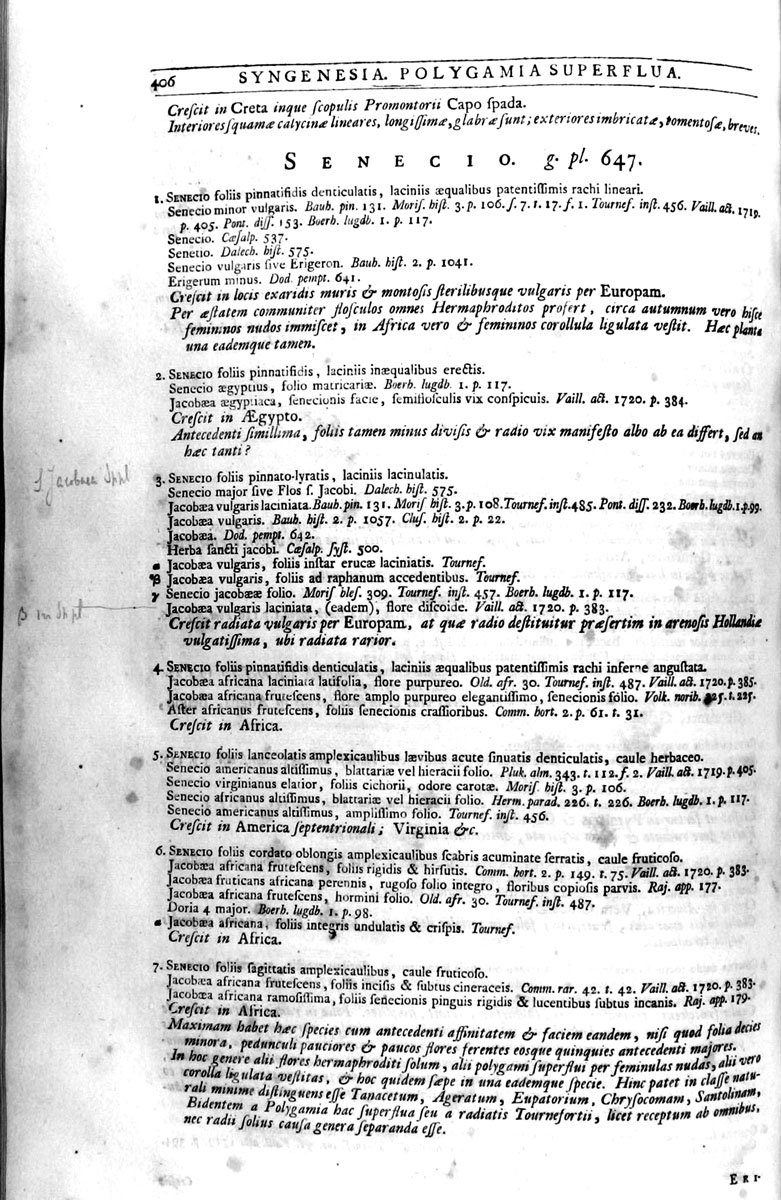 406 SYNGENESIA. POLYGAMIA SUPERFLUA.
Creſcit in Creta inque ſcopulis Promontorii Capo ſpada.
Interiores ſquamæ calycinæ lineares, longiſſimæ, glabræ ſunt; exteriores imbricatæ, tomentoſæ, breves.
SENECIO. g. pl. 647.
1. SENECIO foliis pinnatifidis denticulatis, laciniis æqualibus patentiſſimis rachi lineari.
Senecio minor vulgaris. Bauh. pin. 131. Moriſ. hiſt. 3. p. 106. ſ. 7. t. 17. f. 1. Tournef. inſt. 456. Vaill. act. 1719.
p. 405. Pont. diſſ. 153. Boerh. lugdb. 1. p. 117.
Senecio. Cæſalp. 537.
Senetio. Dalech. hiſt. 575.
Senecio vulgaris ſive Erigeron. Bauh. hiſt. 2. p. 1041.
Erigerum minus. Dod. pempt. 641.
Creſcit in locis exaridis muris & montoſis ſterilibusque vulgaris per Europam.
Per æſtatem communiter floſculos omnes Hermaphroditos profert, circa autumnum vero hiſce
femininos nudos immiſcet, in Africa vero & femininos corollula ligulata veſtit. Hæc planta
una eademque tamen.
2. SENECIO foliis pinnatifidis, laciniis inæqualibus erectis.
Senecio ægyptius, folio matricariæ. Boerh. lugdb. 1. p. 117.
Jacobæa ægyptiaca, ſenecionis facie, ſemifloſculis vix conſpicuis. Vaill. act. 1720. p. 384.
Creſcit in Ægypto.
Antecedenti ſimillima, foliis tamen minus diviſis & radio vix manifeſto albo ab ea differt, ſed an
hæc tanti?
3. SENECIO foliis pinnato-lyratis, laciniis lacinulatis.
Senecio major ſive Flos ſ. Jacobi. Dalech. hiſt. 575.
Jacobæa vulgaris laciniata. Bauh. pin. 131. Moriſ hiſt. 3. p. 108. Tournef. inſt. 485. Pont. diſſ. 232. Boerh. lugdb. 1. p. 99.
Jacobæa vulgaris. Bauh. hiſt. 2. p. 1057. Cluſ. hiſt. 2. p. 22.
Jacobæa. Dod. pempt. 642.
Herba ſancti jacobi. Cæſalp. ſyſt. 500.
Jacobæa vulgaris, foliis inſtar erucæ laciniatis. Tournef.
β Jacobæa vulgaris, foliis ad raphanum accedentibus. Tournef.
γ Senecio jacobææ folio. Moriſ bleſ. 309. Tournef. inſt. 457. Boerh. lugdb. 1. p. 117.
Jacobæa vulgaris laciniata, (eadem), flore diſcoide. Vaill. act. 1720. p. 383.
Creſcit radiata vulgaris per Europam, at quæ radio deſtituitur præſertim in arenoſis Hollandiæ
vulgatiſſima, ubi radiata rarior.
4. SENECIO foliis pinnatifidis denticulatis, laciniis æqualibus patentiſſimis rachi inferne anguſtata.
Jacobæa africana laciniata latifolia, flore purpureo. Old. afr. 30. Tournef. inſt. 487. Vaill. act. 1720. p. 385.
Jacobæa africana fruteſcens, flore amplo purpureo elegantiſſimo, ſenecionis folio. Volk. norib. 225. t. 225.
Aſter africanus fruteſcens, foliis ſenecionis craſſioribus. Comm. hort. 2. p. 61. t. 31.
Creſcit in Africa.
5. SENECIO foliis lanceolatis amplexicaulibus lævibus acute ſinuatis denticulatis, caule herbaceo.
Senecio americanus altiſſimus, blattariæ vel hieracii folio. Pluk. alm. 343. t. 112. f. 2. Vaill. act. 1719. p. 405.
Senecio virginianus elatior, foliis cichorii, odore carotæ. Moriſ. hiſt. 3. p. 106.
Senecio africanus altiſſimus, blattariæ vel hieracii folio. Herm. parad. 226. t. 226. Boerh. lugdb. 1. p. 117.
Senecio americanus altiſſimus, ampliſſimo folio. Tournef. inſt. 456.
Creſcit in America ſeptentrionali; Virginia &c.
6. SENECIO foliis cordato oblongis amplexicaulibus ſcabris acuminate ſerratis, caule fruticoſo.
Jacobæa africana fruteſcens, foliis rigidis & hirſutis. Comm. hort. 2. p. 149. t. 75. Vaill. act. 1720. p. 383.
Jacobæa fruticans africana perennis, rugoſo folio integro, floribus copioſis parvis. Raj. app. 177.
Jacobæa africana fruteſcens, hormini folio. Old. afr. 30. Tournef. inſt. 487.
Doria 4 major. Boerh. lugdb. 1. p. 98.
Jacobæa africana, foliis integris undulatis & criſpis. Tournef.
Creſcit in Africa.
7. SENECIO foliis ſagittatis amplexicaulibus, caule fruticoſo.
Jacobæa africana fruteſcens, foliis inciſis & ſubtus cineraceis. Comm. rar. 42. t. 42. Vaill. act. 1720. p. 383.
Jacobæa africana ramoſiſſima, foliis ſenecionis pinguis rigidis & lucentibus ſubtus incanis. Raj. app. 179.
Creſcit in Africa.
Maximam habet hæc ſpecies cum antecedenti affinitatem & faciem eandem, niſi quod folia decies
minora, pedunculi pauciores & paucos flores ferentes eosque quinquies antecedenti majores.
In hoc genere alii flores hermaphroditi ſolum, alii polygami ſuperflui per feminulas nudas, alii vero
corolla ligulata veſtitas, & hoc quidem ſæpe in una eademque ſpecie. Hinc patet in claſſe natu-
rali minime diſtinguens eſſe Tanacetum, Ageratum, Eupatorium, Chryſocomam, Santolinam,
Bidentem a Polygamia hac ſuperflua ſeu a radiatis Tournefortii, licet receptum ab omnibus,
nec radii ſolius cauſa genera ſeparanda eſſe.
ERI-
Jacobaea Sp pl
β in Sp pl